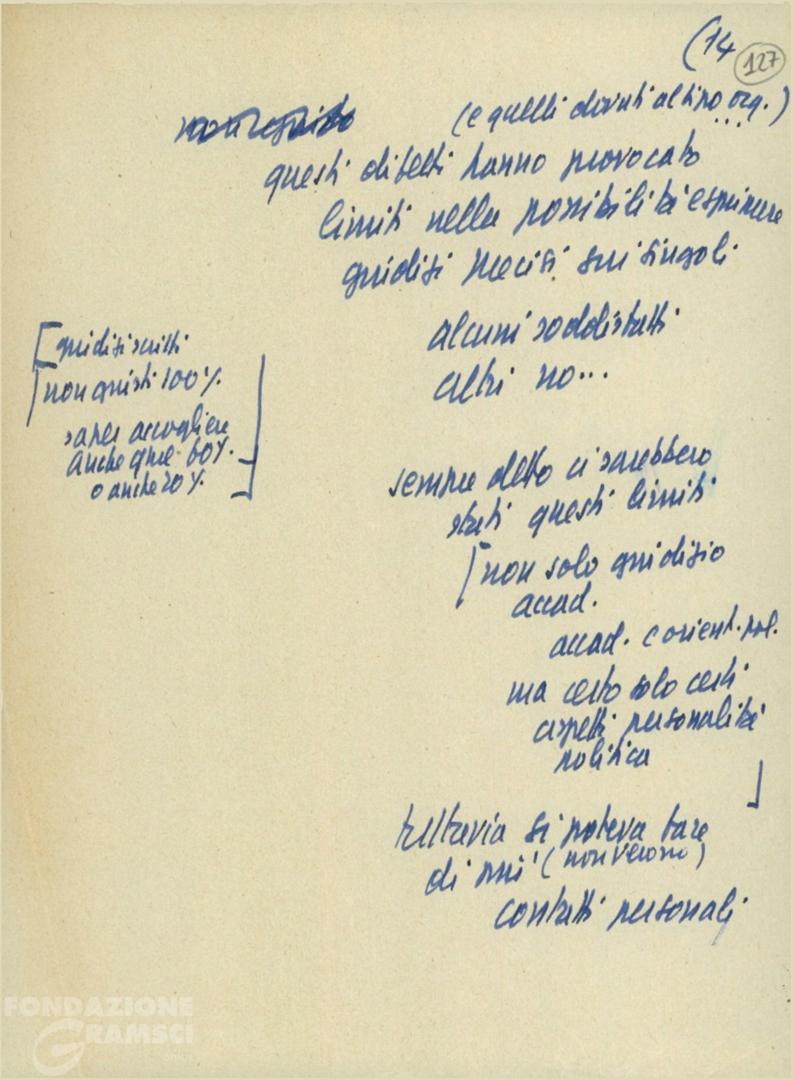 (14
127
(e quelli dovuti al tipo org.)
...
questi difetti hanno provocato
limiti nella possibilità esprimere
giudizi precisi sui singoli
alcuni soddisfatti
altri no...
[giudizi scritti
[non giusti 100%
saper accogliere
anche quel 60%.
o anche 20%.
sempre detto ci sarebbero
stati questi limiti
[non solo giudizio
accad.
accad. e orient. pol.
ma certo solo certi
aspetti personalità
politica
]
tuttavia si poteva fare
di più (non verono)
contatti personali
FONDAZIONE
GRAMSCI